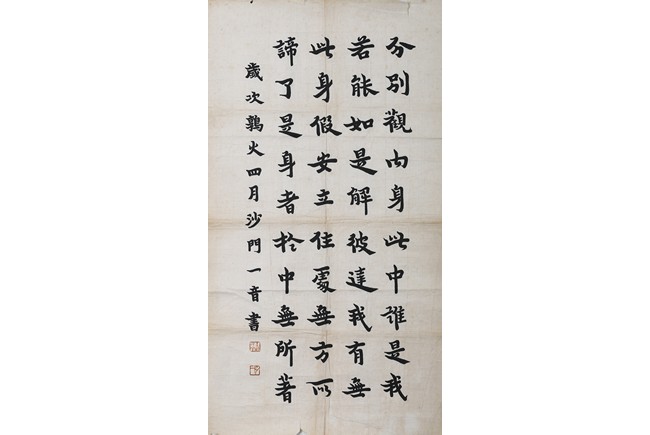 分別觀內身此中誰是我
若能如是解彼達我有無
此身假安立住處無方所
諦了是身者於中無所著
歲次鶉火四月沙門一音書